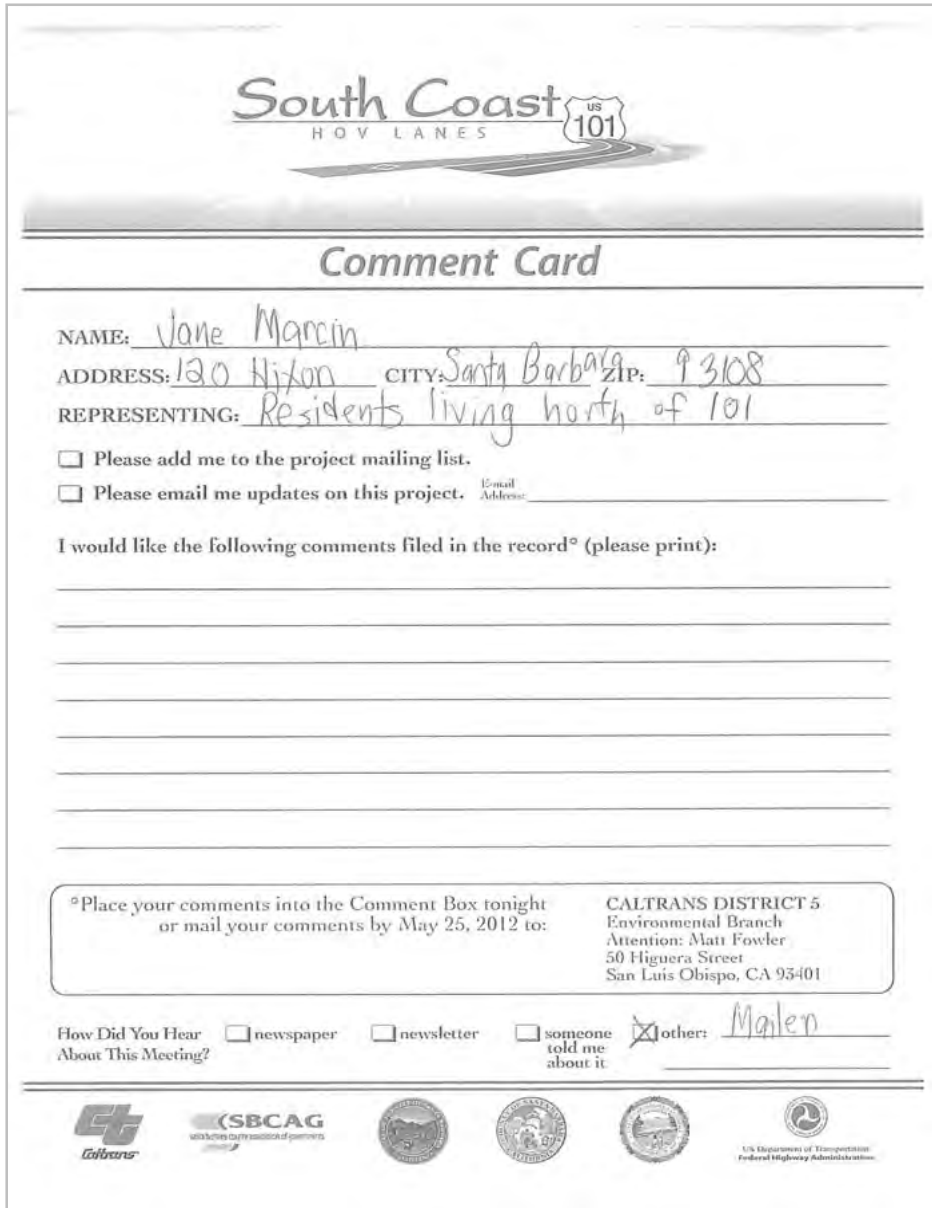 South Coast
HOV LANES
US
101
Comment Card
NAME: Jane Marcin
ADDRESS: 120 Hixon CITY: Santa Barbara ZIP: 93108
REPRESENTING: Residents living north of 101
Please add me to the project mailing list.
Please email me updates on this project. E-mail Address:
I would like the following comments filed in the record° (please print):
°Place your comments into the Comment Box tonight
or mail your comments by May 25, 2012 to:
CALTRANS DISTRICT 5
Environmental Branch
Attention: Matt Fowler
50 Higuera Street
San Luis Obispo, CA 93401
How Did You Hear
About This Meeting?
newspaper
newsletter
someone
told me
about it
other: Mailer
Caltrans
SBCAG
US Department of Transportation
Federal Highway Administration